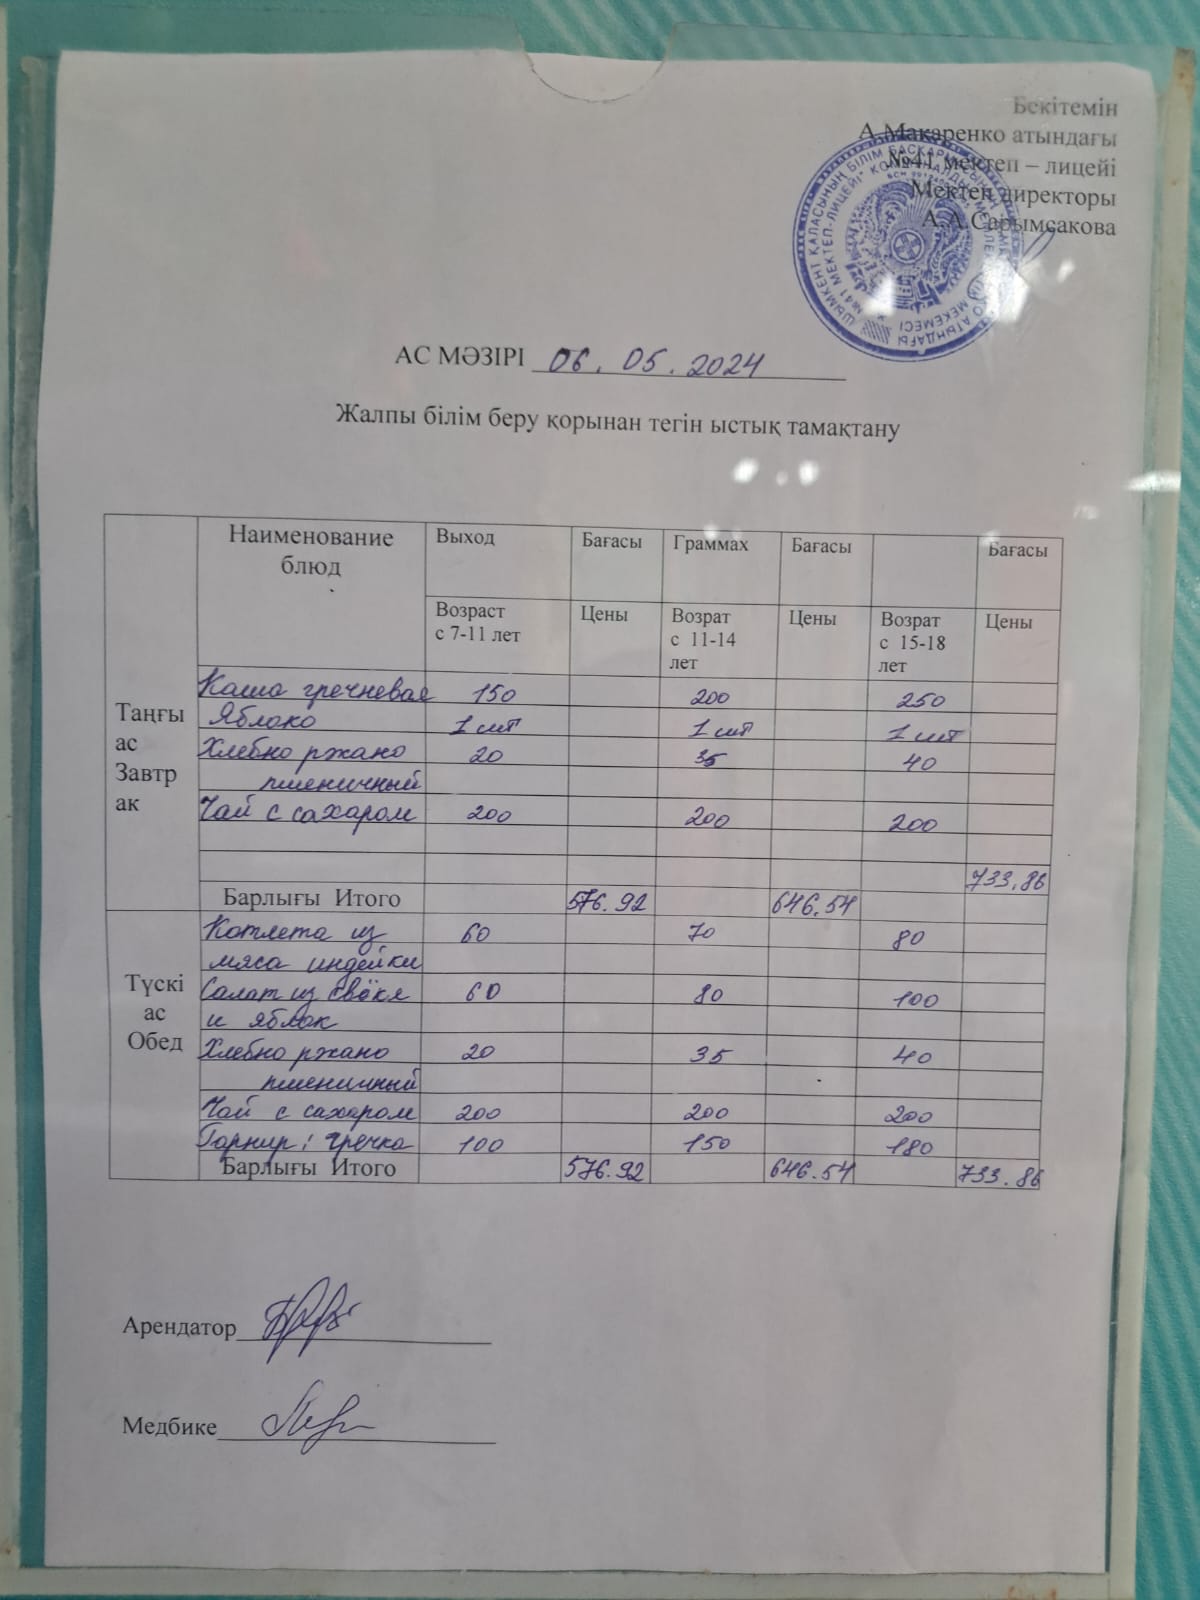 Бекітемін
А.Макаренко атындағы
№41 мектеп – лицейі
Мектеп директоры
А.А.Сарымсакова
АС МӘЗІРІ 06.05.2024
Жалпы білім беру қорынан тегін ыстық тамақтану
Наименование блюд Выход Бағасы Граммах Бағасы Бағасы
Возраст с 7-11 лет Цены Возрат с 11-14 лет Цены Возрат с 15-18 лет Цены
Таңғы ас Завтрак
Каша гречневая 150 200 250
Яблоко 1 шт 1 шт 1 шт
Хлебно ржано 20 35 40
пшеничный
Чай с сахаром 200 200 200
733,86
Барлығы Итого 576.92 646.54
Түскі ас Обед
Котлета из 60 70 80
мяса индейки
Салат из свёкл 60 80 100
и яблок
Хлебно ржано 20 35 40
пшеничный
Чай с сахаром 200 200 200
Гарнир: гречка 100 150 180
Барлығы Итого 576.92 646.54 733.86
Арендатор
Медбике